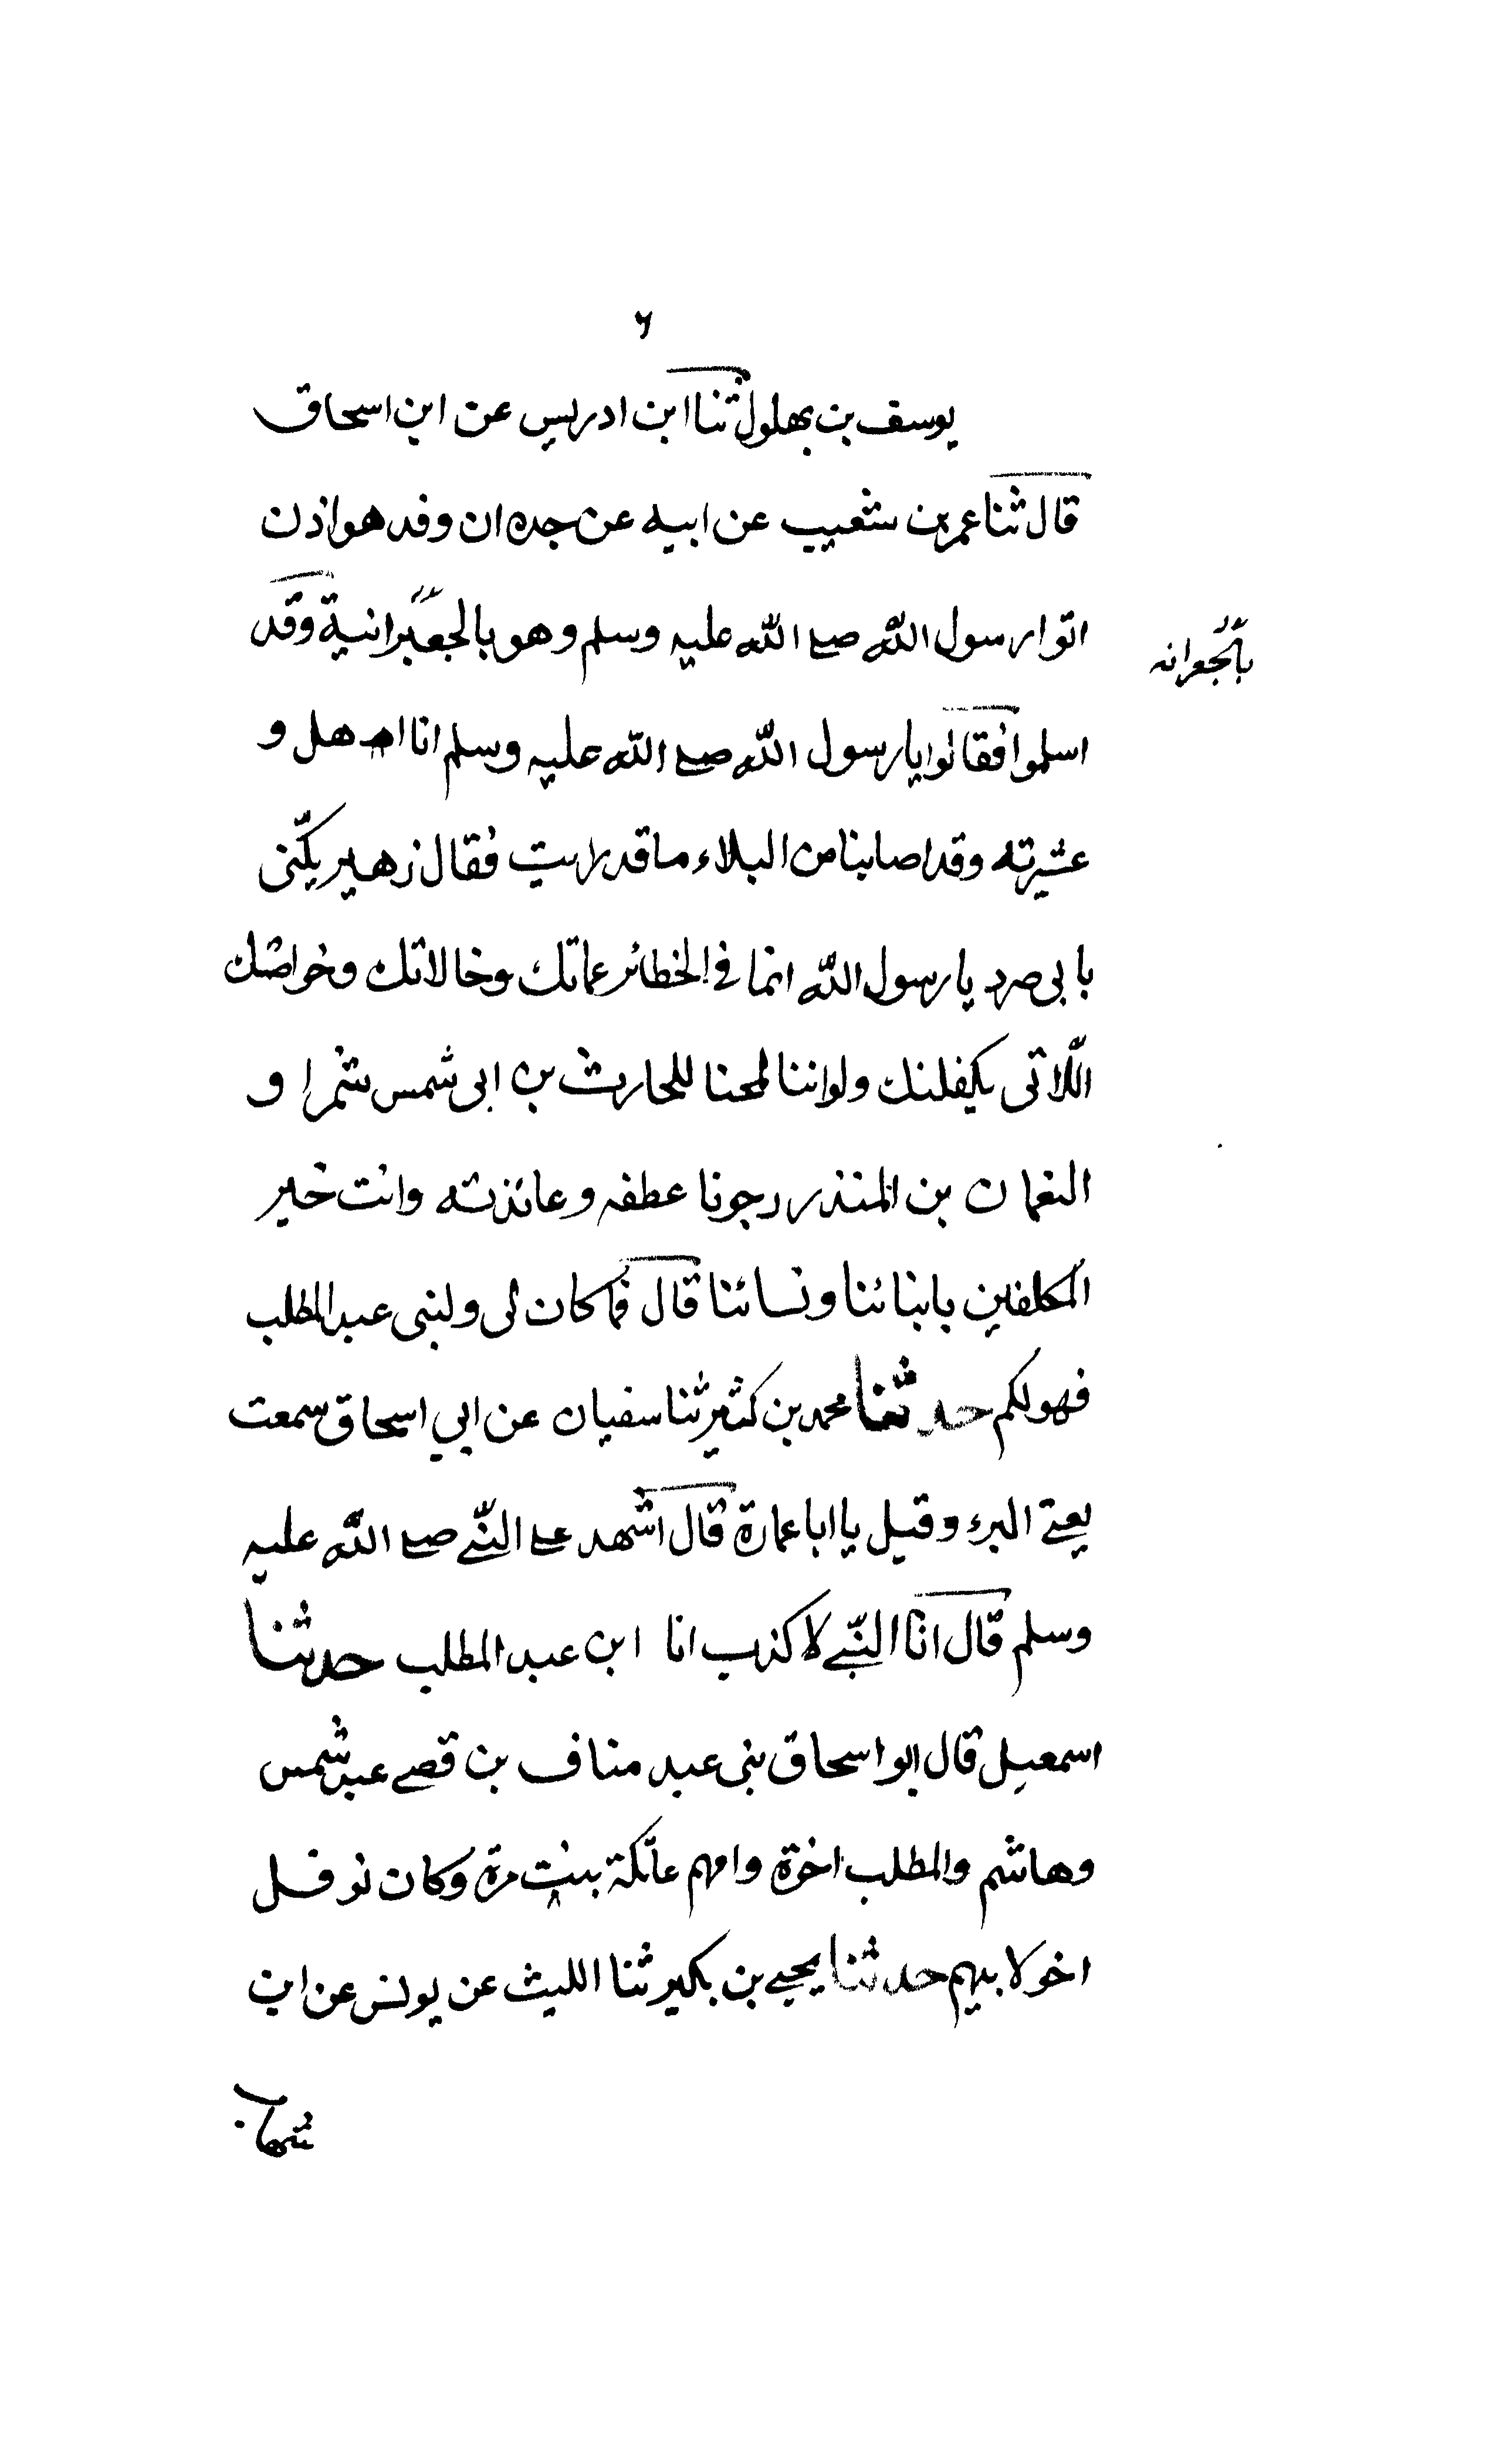 ٦
يوسف بن بهلول ثنا ابن ادريس عن ابن اسحاق
قال ثنا عمر بن شعيب عن ابيه عن جده ان وفد هواذن
اتوا رسول الله صلع الله عليه وسلم وهو بالجعبرانية وقد
بالجعرانه
اسلموا فقالوا يا رسول الله صلع الله عليه وسلم انا اصهل و
عشيرته وقد اصابنا من البلاء ما قد رايت فقال زهير يكّنى
بابي صرد يا رسول الله انما في الخطائر عماتك وخالاتك وخواضك
اللّاتى يكفلنك ولو اننا لمحنا للحارث بن ابى شمس شمرا و
النعمان بن المنذر رجونا عطفه وعائذته وانت خير
المكلفين بابنائنا ونسائنا قال فما كان لى ولبنى عبد المطلب
فهو لكم حدثنا محمد بن كثير ثنا سفيان عن ابي اسحاق سمعت
يعنے البرء وقيل يا ابا عمارة قال اشهد علے النّبے صلے الله عليه
وسلم قال انا النّبے لا كذب انا ابن عبد المطلب حدثنا
اسمعيل قال ابو اسحاق بنى عبد مناف بن قصے عبد شمس
وهاشم والمطلب اخوة وامهم عاتكة بنت مرة وكان نوفل
اخو لابيهم حدثنا يحيے بن بكير ثنا الليث عن يونس عن ابن
شهاب